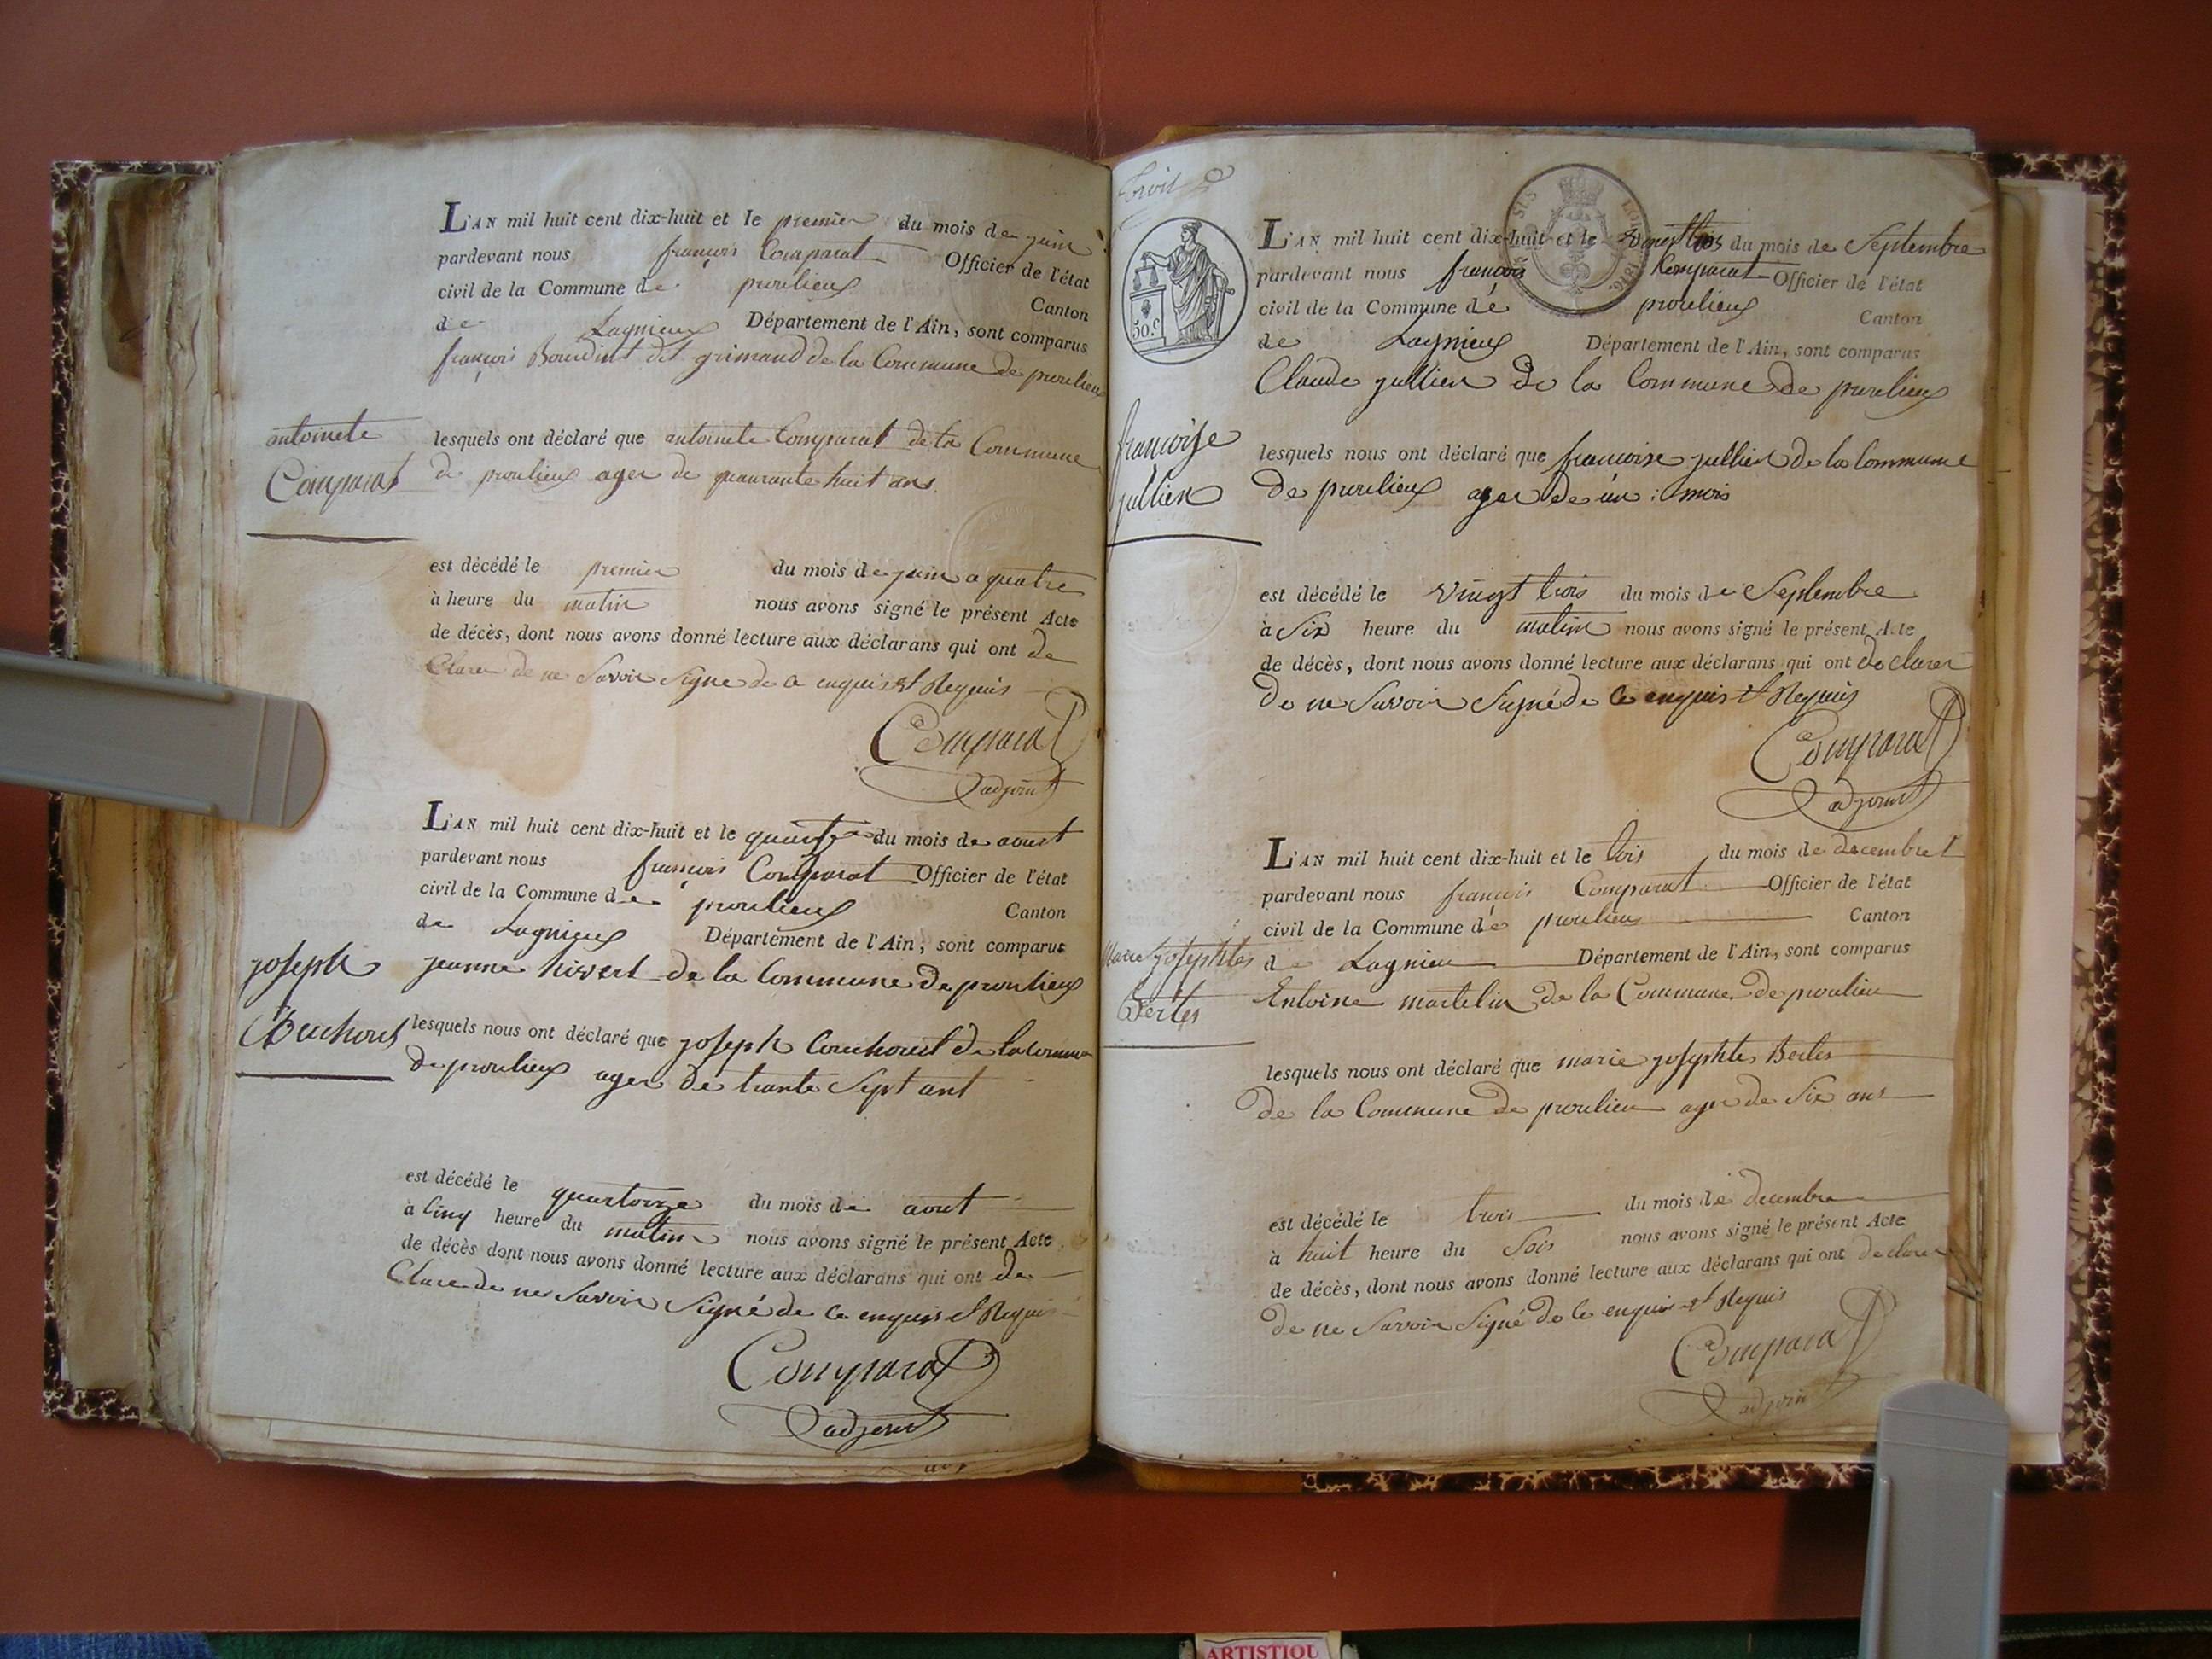 L'AN mil huit cent dix-huit et le premier du mois de juin
pardevant nous françois Comparat Officier de l'état
civil de la Commune de proulieux Canton
de Lagnieux Département de l'Ain, sont comparus
françois Bourdint dit grimaud de la Commune de proulieux
antoinete
Comparat
lesquels ont déclaré que antoinete Comparat de la Commune
de proulieux ager de quaurante huit ans
est décédé le premier du mois de juin a quatre
à heure du matin nous avons signé le présent Acte
de décès, dont nous avons donné lecture aux déclarans qui ont de
Clarer de ne Savoir Signe de ce enquis et Requis
Comparat
adjoint
L'AN mil huit cent dix-huit et le quinze du mois de aoust
pardevant nous françois Comparat Officier de l'état
civil de la Commune de proulieux Canton
de Lagnieux Département de l'Ain, sont comparus
joseph
Couchout
jeanne hivert de la Commune de proulieux
lesquels nous ont déclaré que joseph Couchoud de la Commune
de proulieux ager de trante Sept ant
est décédé le quartorze du mois de aout
à Cinq heure du matin nous avons signé le présent Acte
de décès dont nous avons donné lecture aux déclarans qui ont de
Clare de ne Savoir Signé de ce enquis et Requis
Comparat
adjoint
50.c
L'AN mil huit cent dix-huit et le vingt trois du mois de Septembre
pardevant nous françois Comparat Officier de l'état
civil de la Commune de proulieux Canton
de Lagnieux Département de l'Ain, sont comparus
Claude jullien de la Commune de proulieux
francoise
jullien
lesquels nous ont déclaré que francoise jullien de la Commune
de proulieux ager de un mois
est décédé le vingt trois du mois de Septembre
à Six heure du matin nous avons signé le présent Acte
de décès, dont nous avons donné lecture aux déclarans qui ont declarer
de ne Savoir Signé de ce enquis et Requis
Comparat
adjoint
L'AN mil huit cent dix-huit et le trois du mois de decembre
pardevant nous françois Comparat Officier de l'état
civil de la Commune de proulieu Canton
de Lagnieu Département de l'Ain, sont comparus
Marie josephtes
Bertes
Entoine martelin de la Commune de proulieu
lesquels nous ont déclaré que marie josephte Bertes
de la Commune de proulieu ager de Six ans
est décédé le trois du mois de decembre
à huit heure du Soir nous avons signé le présent Acte
de décès, dont nous avons donné lecture aux déclarans qui ont declarer
de ne Savoir Signé de ce enquis et Requis
Comparat
adjoint
ARTISTIQU